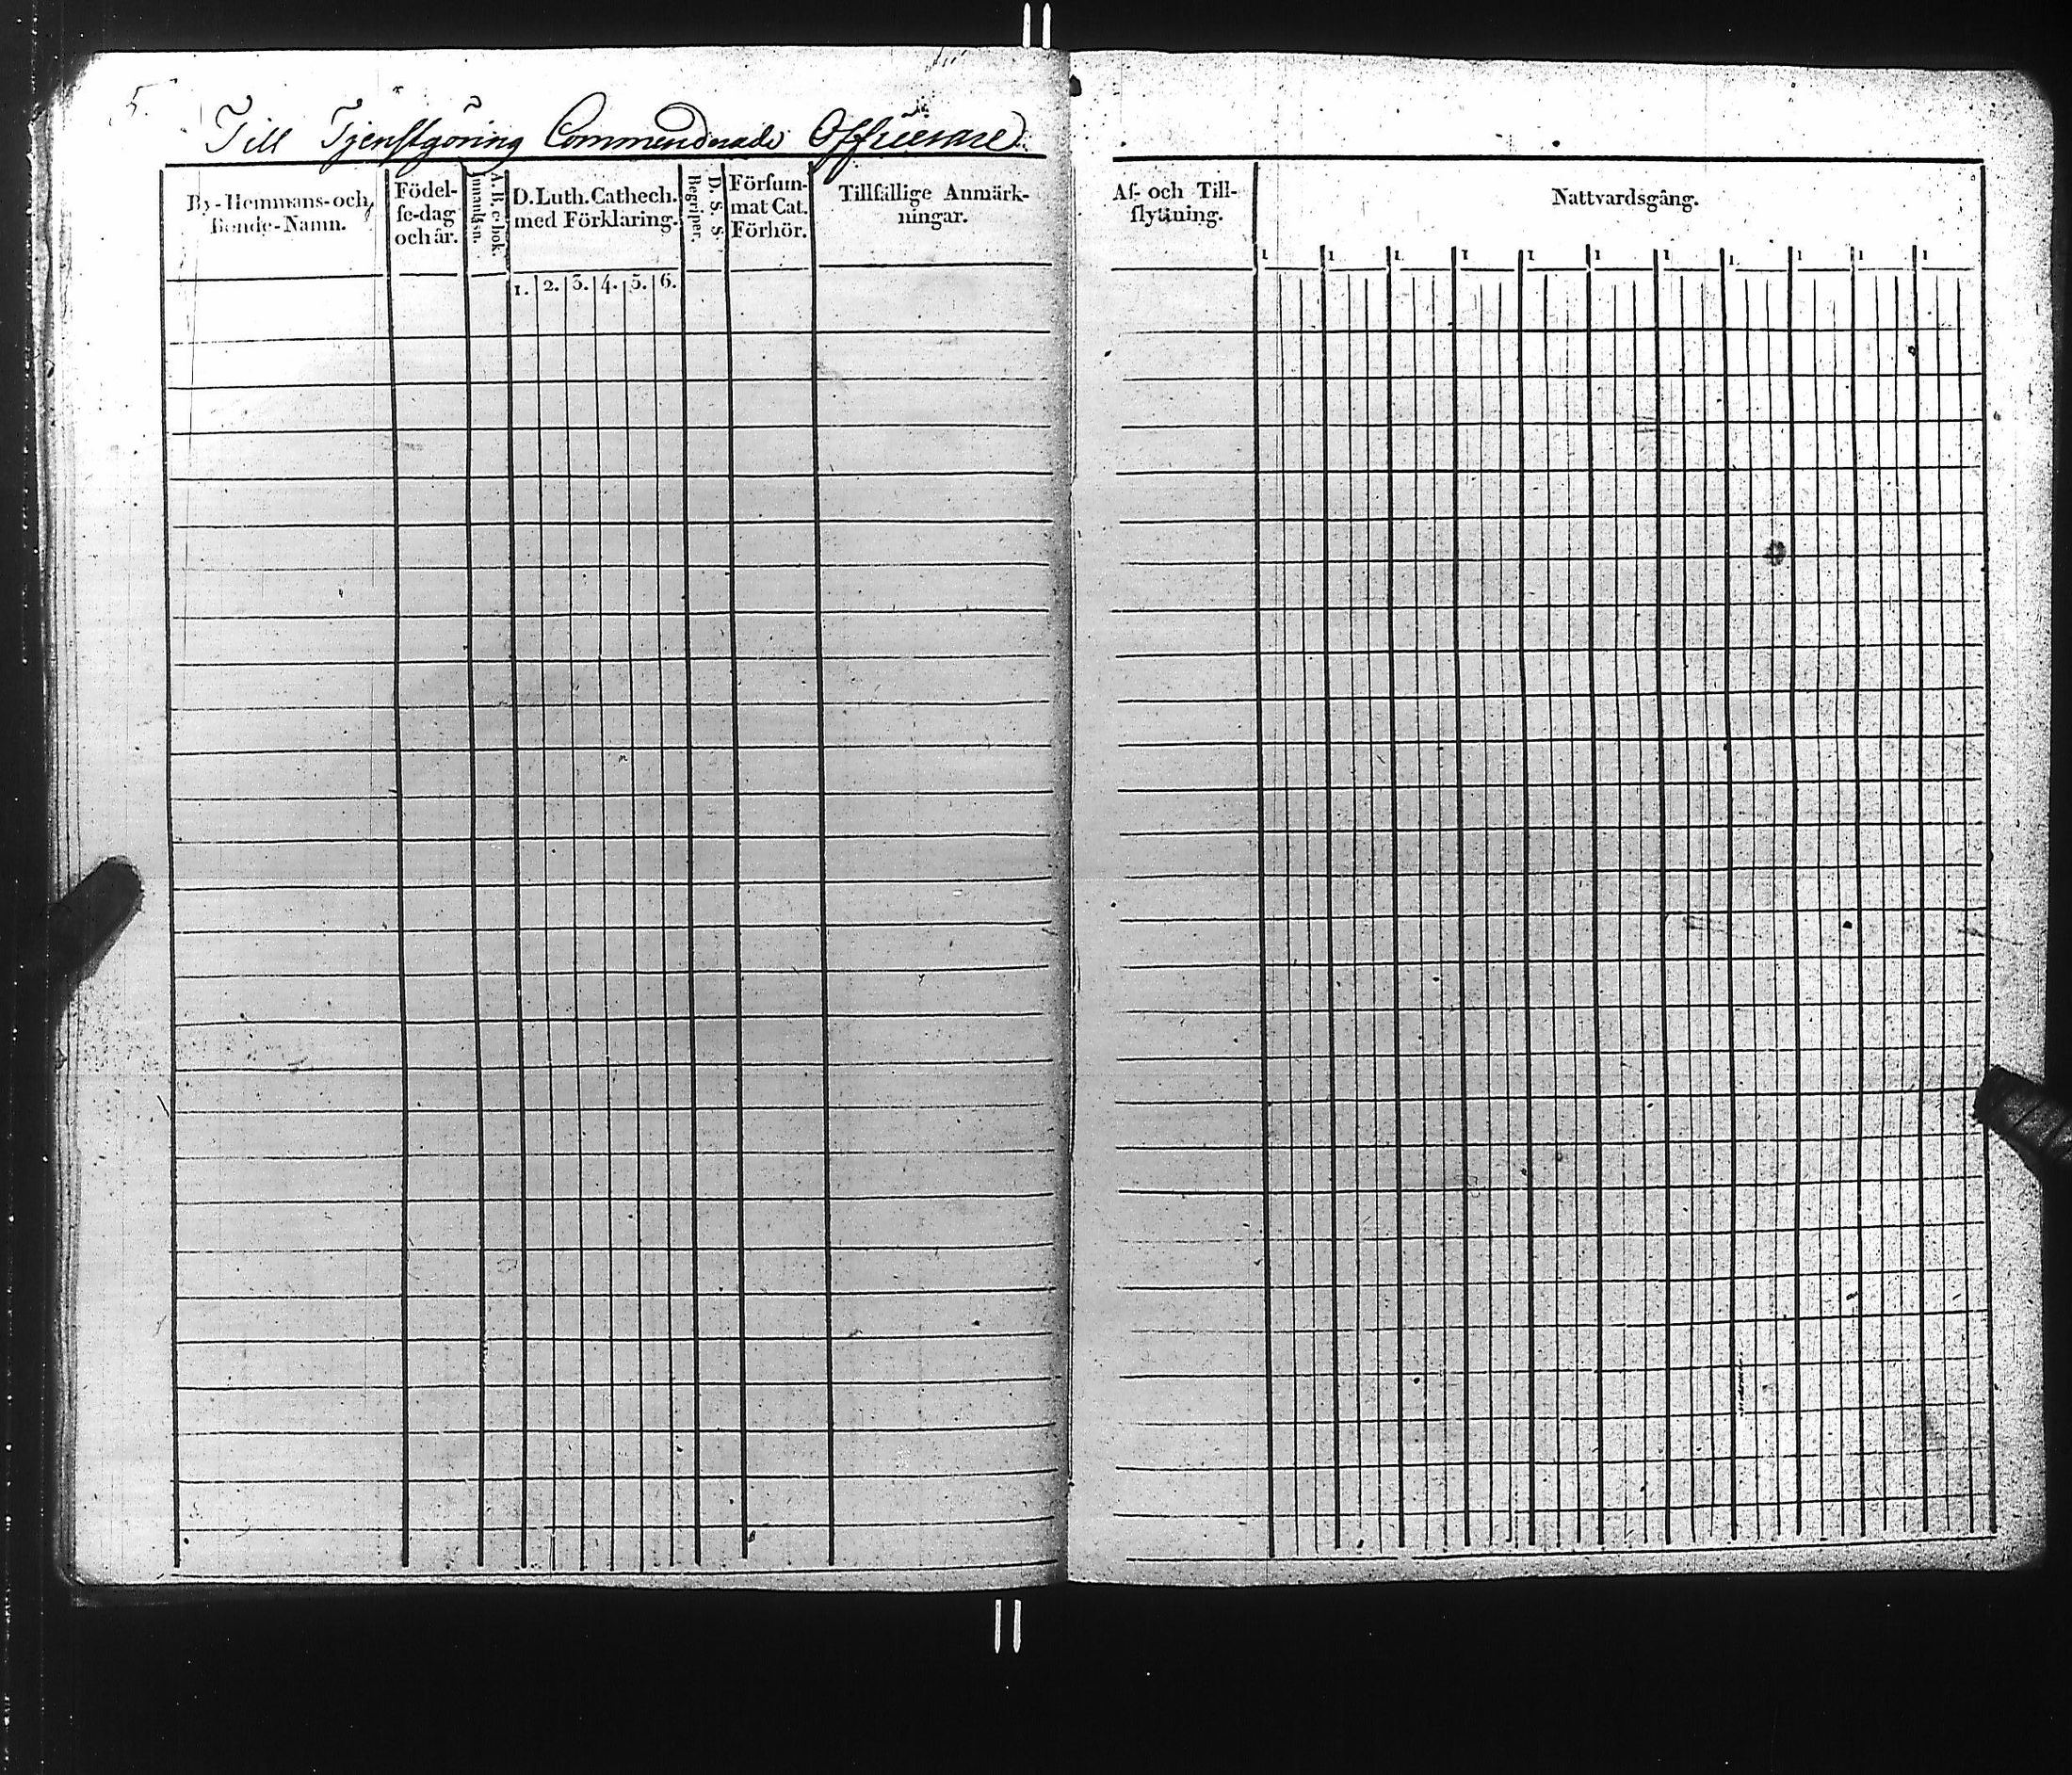 5.
Till Tjenstgöring Commenderade Officerare
By-Hemmans-och
Bonde-Namn.
Födel-
se-dag
och år.
A. B. c-bok.
Innanläsn.
D. Luth. Cathech.
med Förklaring.
1. 2. 3. 4. 5. 6.
D. S. S.
Begriper.
Försum-
mat Cat.
Förhör.
Tillfällige Anmärk-
ningar.
Af- och Till-
flyttning.
Nattvardsgång.
1. 1. 1. 1 1 1 1 1. 1 1 1